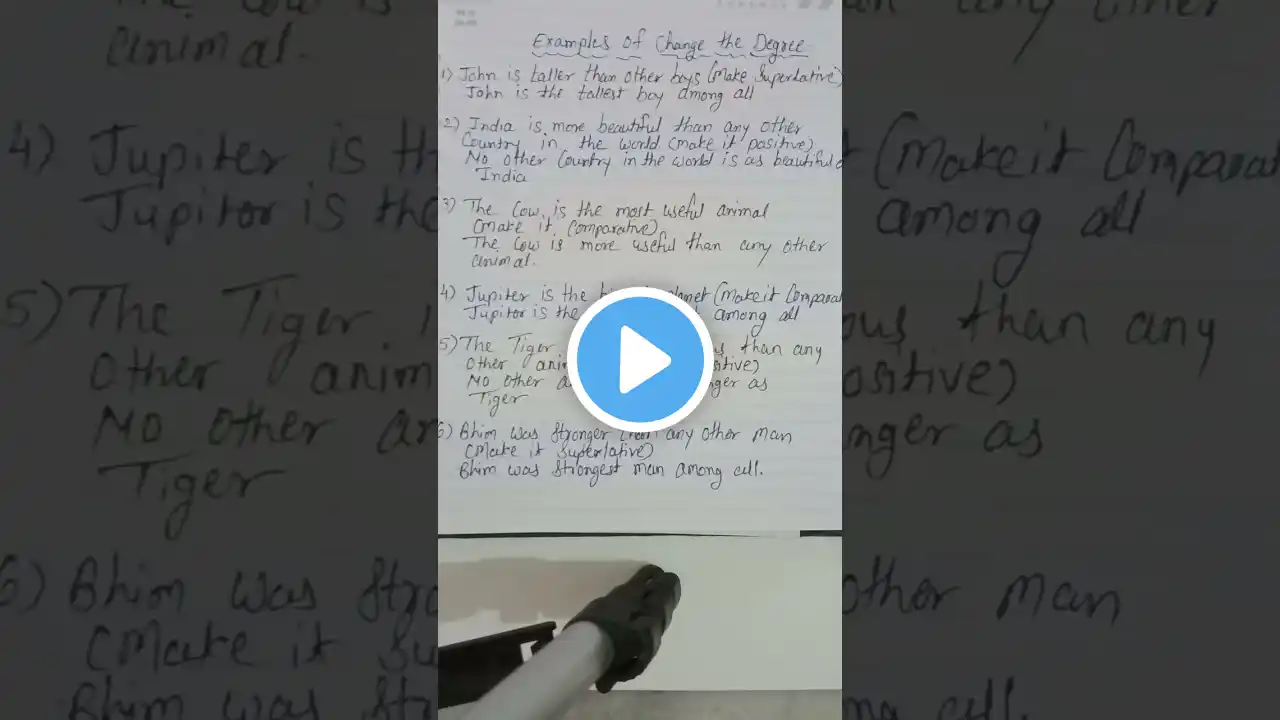 Examples of Change the Degree
1) John is taller than other boys (Make Superlative)
John is the tallest boy among all
2) India is more beautiful than any other
Country in the world (make it positive)
No other Country in the world is as beautiful
India
3) The Cow is the most useful animal
(Make it Comparative)
The Cow is more useful than any other
animal.
4) Jupiter is the planet (Make it Compara
Jupitor is the among all
5) The Tiger than any
Other
No Other as
Tiger
6) Bhim was Stronger than any other Man
(Make it Superlative)
Bhim was Strongest man among all.